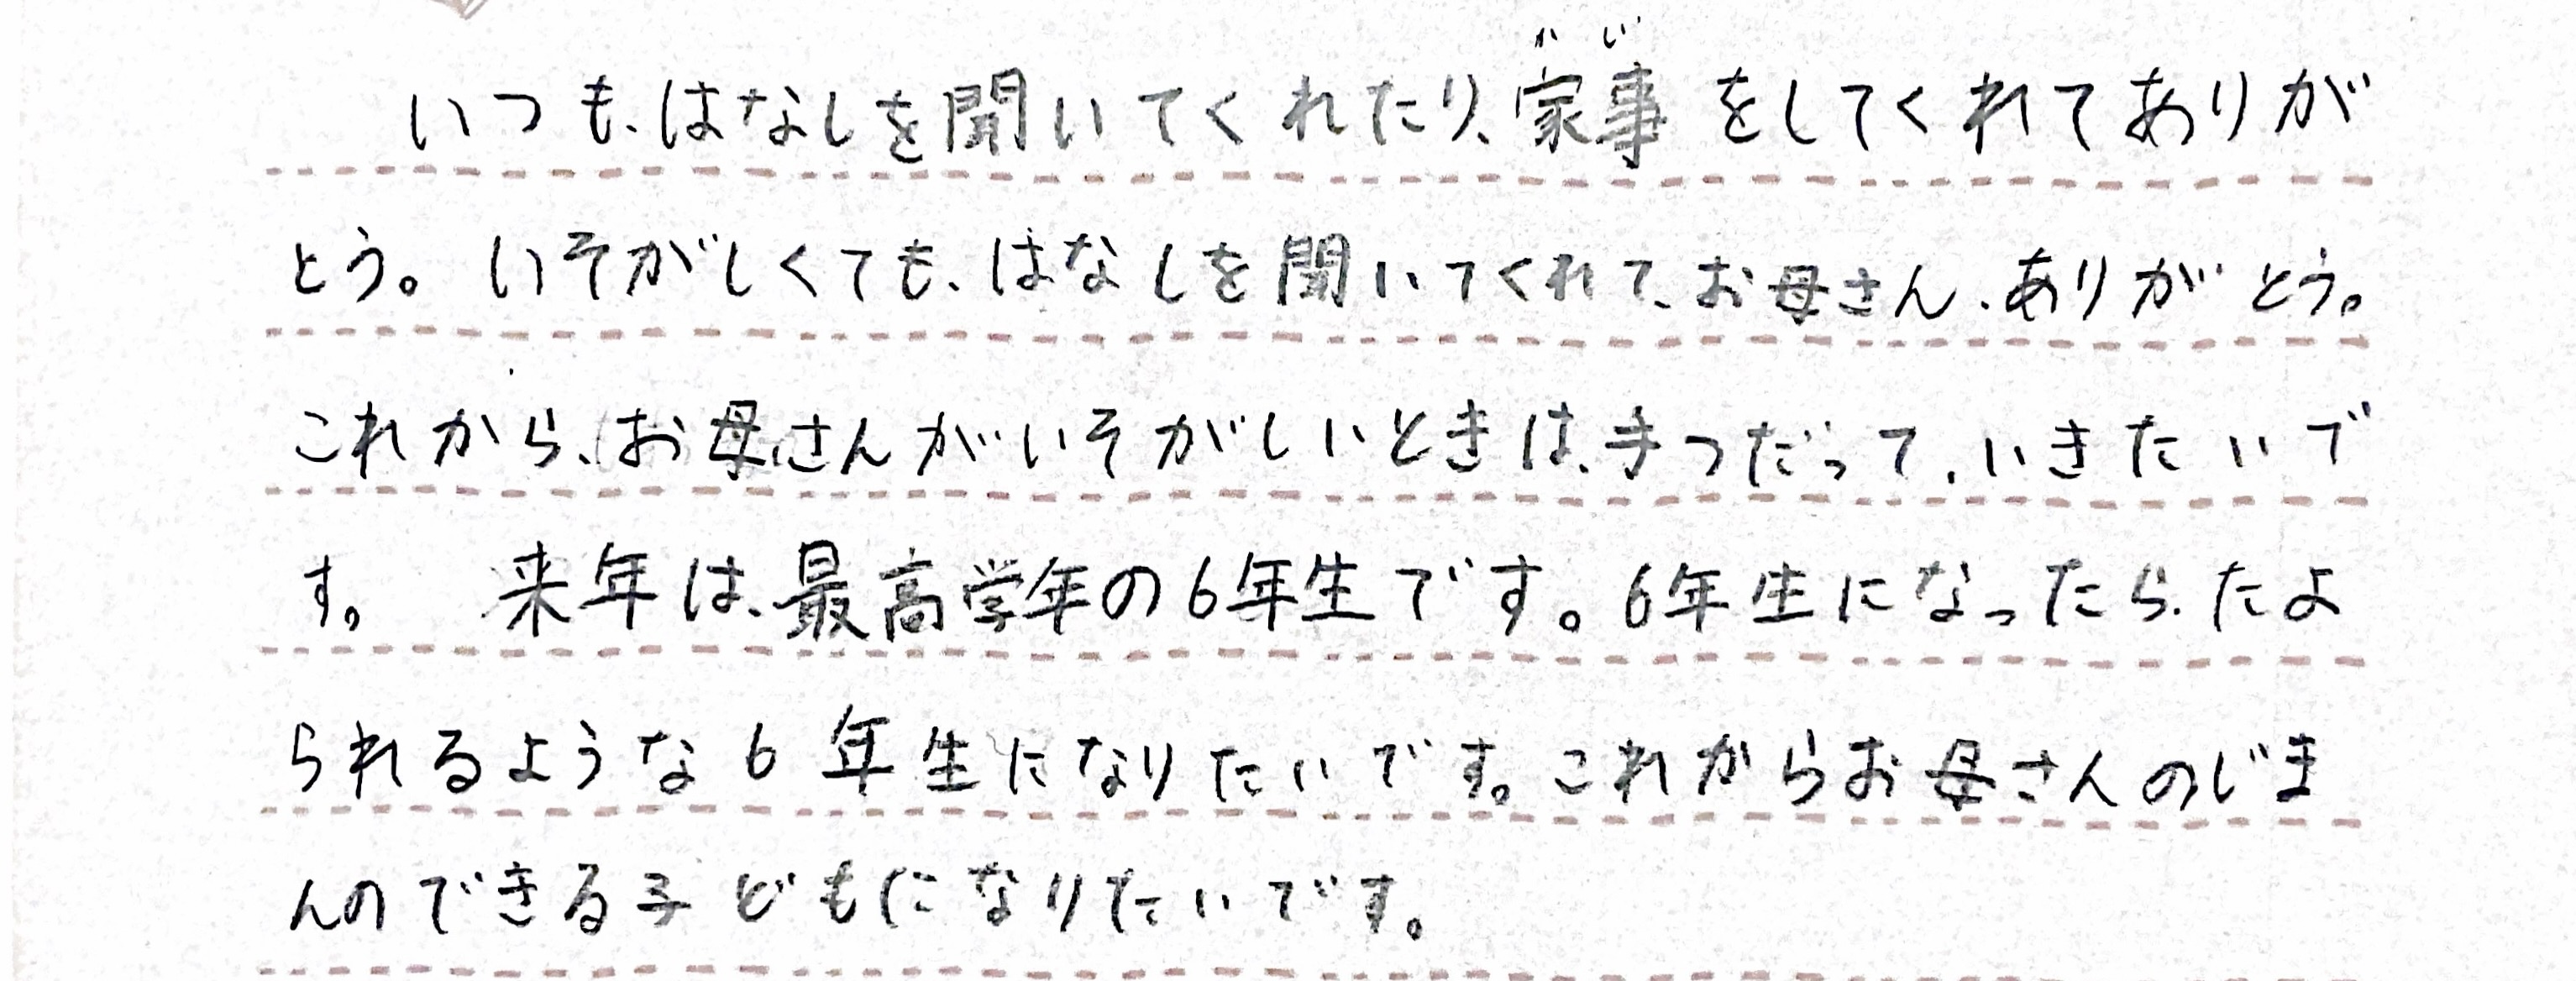 かじ
いつも、はなしを聞いてくれたり、家事をしてくれてありが
とう。いそがしくても、はなしを聞いてくれて、お母さん、ありがとう。
これから、お母さんがいそがしいときは、手つだって、いきたいで
す。 来年は、最高学年の6年生です。6年生になったら、たよ
られるような6年生になりたいです。これからお母さんのじま
んのできる子どもになりたいです。